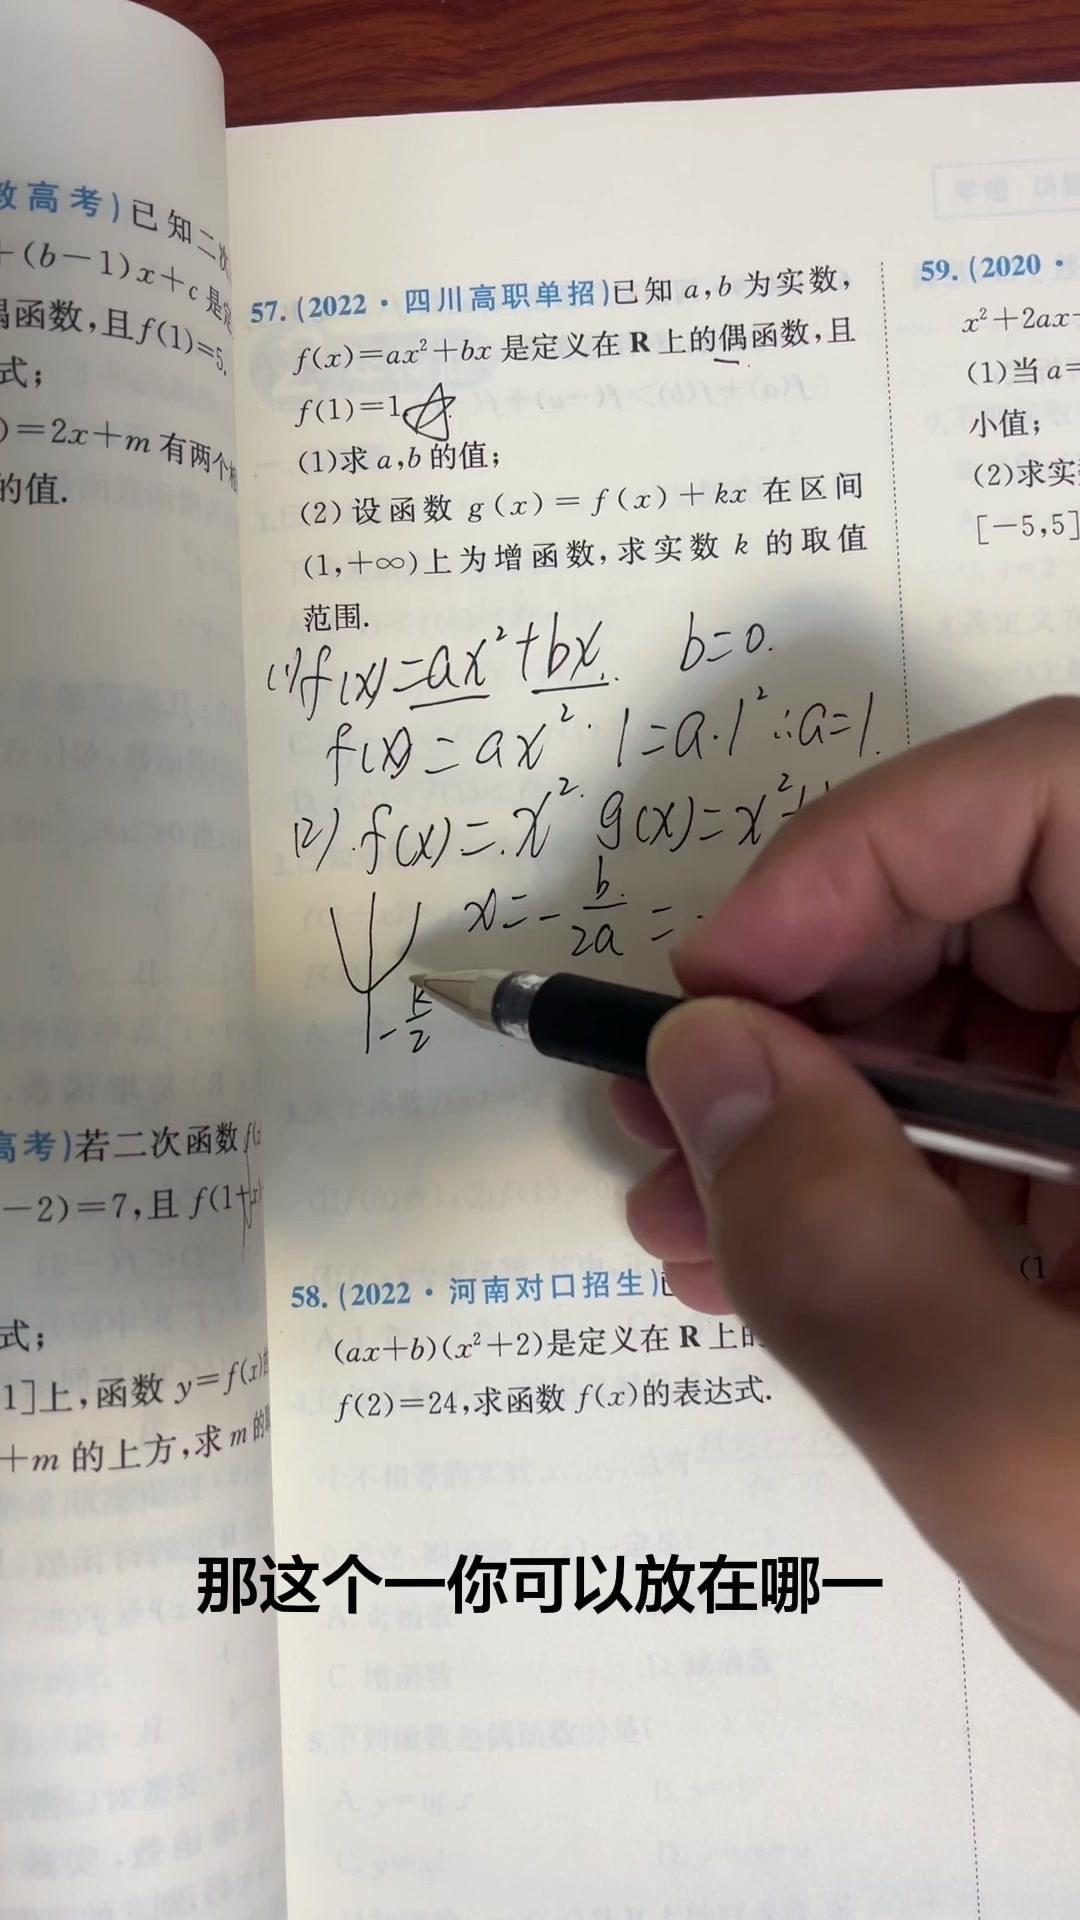 数高考)已知二次
+(b-1)x+c是定
偶函数,且f(1)=5.
式;
)=2x+m有两个相
的值.
高考)若二次函数f(x
-2)=7,且f(1+x)
式;
1]上,函数y=f(x)的
+m的上方,求m的取
57.(2022·四川高职单招)已知a,b为实数,
f(x)=ax²+bx是定义在R上的偶函数,且
f(1)=1
(1)求a,b的值;
(2)设函数g(x)=f(x)+kx在区间
(1,+∞)上为增函数,求实数k的取值
范围.
(1)f(x)=ax²+bx. b=0.
f(x)=ax². 1=a·1² ∴a=1.
(2).f(x)=x². g(x)=x²+
x=-b/2a=-
-k/2
58.(2022·河南对口招生)已
(ax+b)(x²+2)是定义在R上的
f(2)=24,求函数f(x)的表达式.
59.(2020·
x²+2ax+
(1)当a=
小值;
(2)求实
[-5,5]
(1
那这个一你可以放在哪一